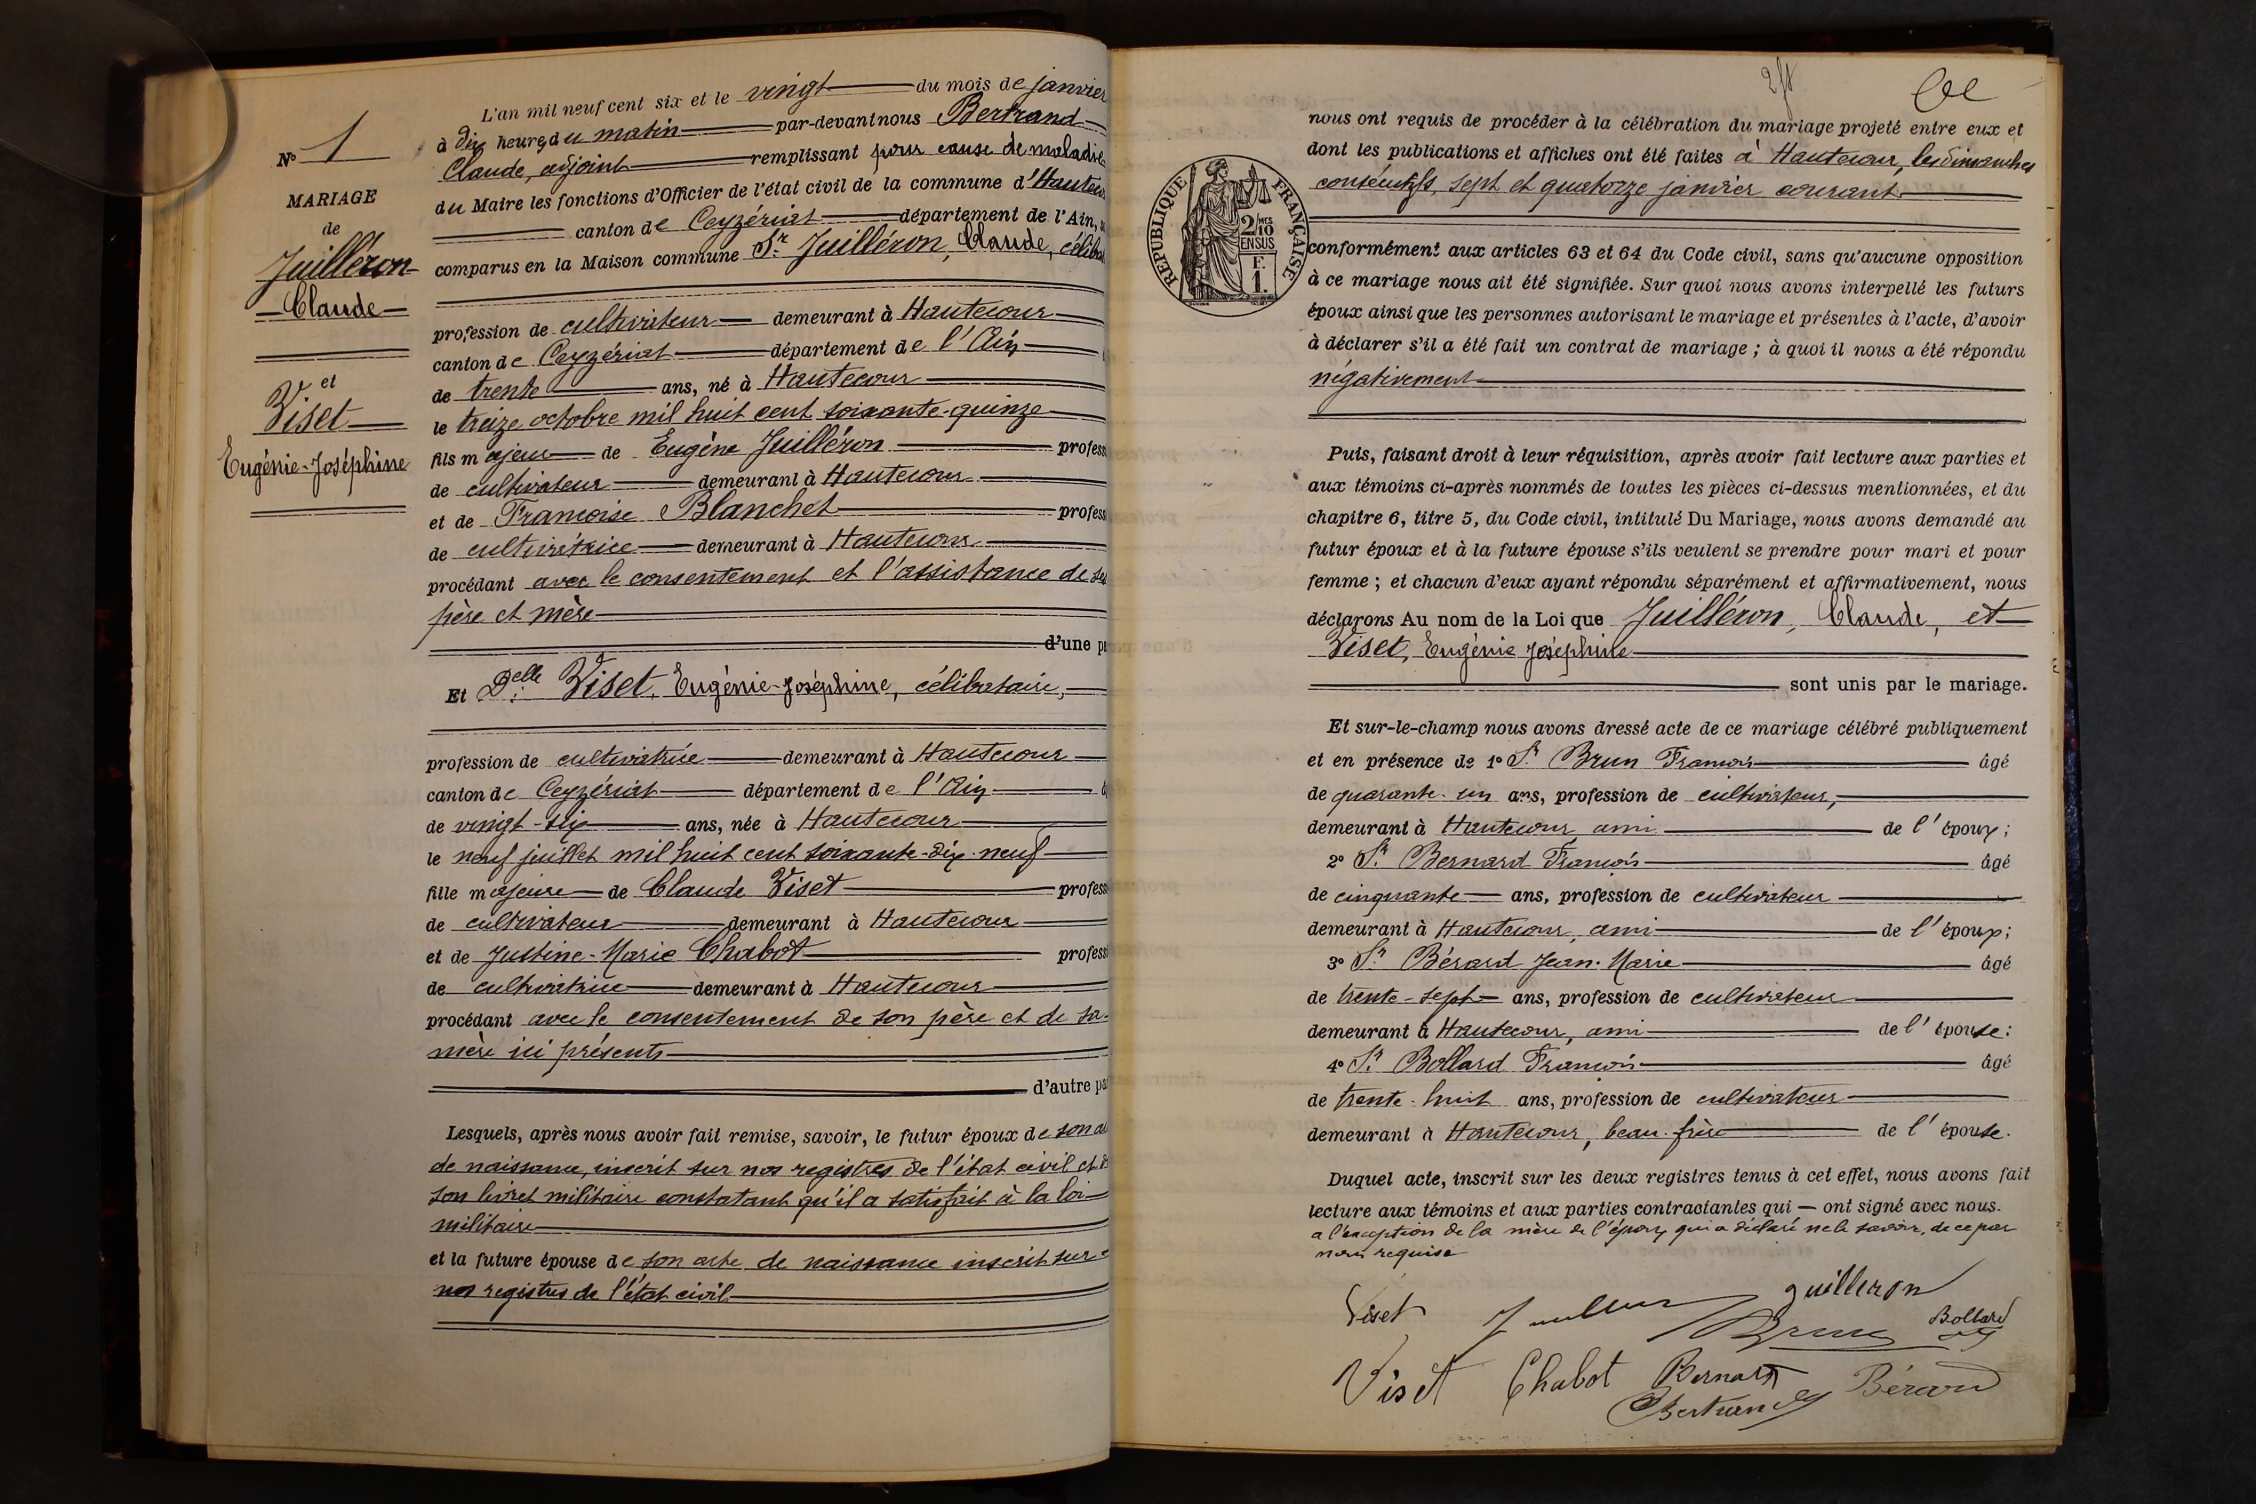 N° 1
MARIAGE
de
Juilléron
Claude
et
Viset
Eugénie-Joséphine
L'an mil neuf cent six et le vingt du mois de janvier
à dix heures du matin par-devant nous Bertrand
Claude, adjoint remplissant pour cause de maladie
du Maire les fonctions d'Officier de l'état civil de la commune d'Hautecour
canton de Ceyzériat département de l'Ain,
comparus en la Maison commune Sr. Juilléron, Claude, céliba
profession de cultivateur demeurant à Hautecour
canton de Ceyzériat département de l'Ain
de trente ans, né à Hautecour
le treize octobre mil huit cent soixante-quinze
fils majeur de Eugène Juilléron profess
de cultivateur demeurant à Hautecour
et de Françoise Blanchet profess
de cultivatrice demeurant à Hautecour
procédant avec le consentement et l'assistance de ses
père et mère
d'une p
Et Delle. Viset, Eugénie-Joséphine, célibataire,
profession de cultivatrice demeurant à Hautecour
canton de Ceyzériat département de l'Ain
de vingt-six ans, née à Hautecour
le neuf juillet mil huit cent soixante-dix-neuf
fille majeure de Claude Viset profess
de cultivateur demeurant à Hautecour
et de Justine-Marie Chabot profess
de cultivatrice demeurant à Hautecour
procédant avec le consentement de son père et de sa
mère ici présents
d'autre pa
Lesquels, après nous avoir fait remise, savoir, le futur époux de son
de naissance, inscrit sur nos registres de l'état civil et
son livret militaire constatant qu'il a satisfait à la loi
militaire
et la future épouse de son acte de naissance inscrit sur
nos registres de l'état civil
RÉPUBLIQUE FRANÇAISE
2/10 MES
EN SUS
F.
1.
nous ont requis de procéder à la célébration du mariage projeté entre eux et
dont les publications et affiches ont été faites à Hautecour, les dimanches
consécutifs, sept et quatorze janvier courant
conformément aux articles 63 et 64 du Code civil, sans qu'aucune opposition
à ce mariage nous ait été signifiée. Sur quoi nous avons interpellé les futurs
époux ainsi que les personnes autorisant le mariage et présentes à l'acte, d'avoir
à déclarer s'il a été fait un contrat de mariage ; à quoi il nous a été répondu
négativement
Puis, faisant droit à leur réquisition, après avoir fait lecture aux parties et
aux témoins ci-après nommés de toutes les pièces ci-dessus mentionnées, et du
chapitre 6, titre 5, du Code civil, intitulé Du Mariage, nous avons demandé au
futur époux et à la future épouse s'ils veulent se prendre pour mari et pour
femme ; et chacun d'eux ayant répondu séparément et affirmativement, nous
déclarons Au nom de la Loi que Juilléron, Claude, et
Viset, Eugénie Joséphine
sont unis par le mariage.
Et sur-le-champ nous avons dressé acte de ce mariage célébré publiquement
et en présence de 1° Sr. Brun François âgé
de quarante-un ans, profession de cultivateur,
demeurant à Hautecour, ami de l'époux ;
2° Sr. Bernard François âgé
de cinquante ans, profession de cultivateur
demeurant à Hautecour, ami de l'époux ;
3° Sr. Bérard Jean-Marie âgé
de trente-sept ans, profession de cultivateur
demeurant à Hautecour, ami de l'épouse ;
4° Sr. Bollard François âgé
de trente-huit ans, profession de cultivateur
demeurant à Hautecour, beau-frère de l'épouse.
Duquel acte, inscrit sur les deux registres tenus à cet effet, nous avons fait
lecture aux témoins et aux parties contractantes qui — ont signé avec nous.
a l'exception de la mère de l'époux qui a déclaré ne le savoir, de ce par
nous requise
Viset Juilleron Bollard
Brun
Viset Chabot Bernard Bérard
Bertrand